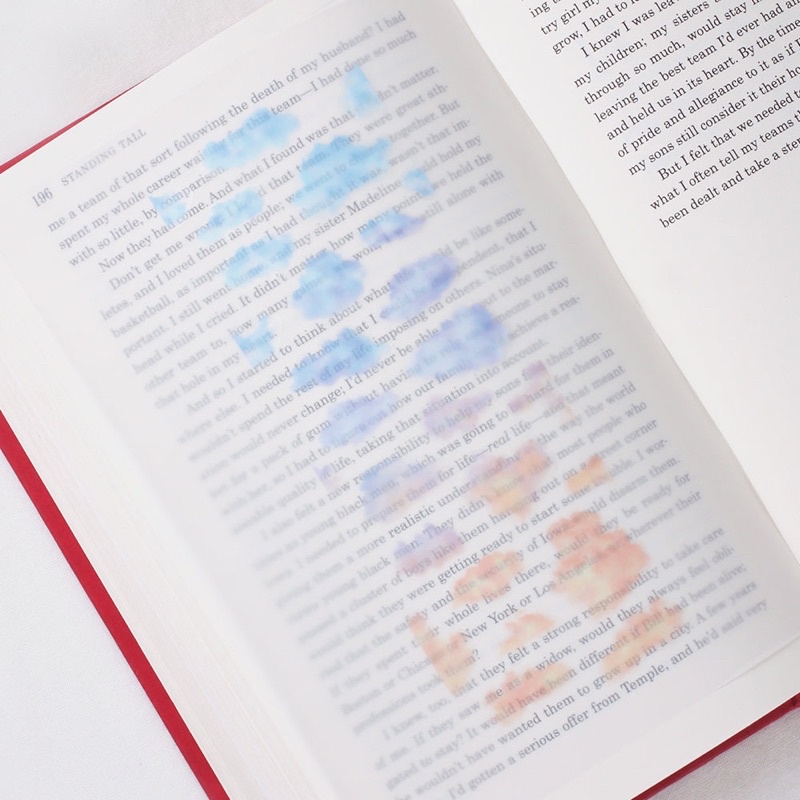 196 STANDING TALL
me a team of that sort following the death of my husband? I had
spent my whole career wai for this team—I had done so much
with so little, by comparison. dn't matter.
Now they had come. And what I found was that They were great ath-
Don't get me wrong, I loved that team. together. But
letes, and I loved them as people; we went to wasn't that im-
basketball, as important as I had thought it was,
portant. I still went home, and my sister Madeline could hold my
head while I cried. It didn't matter how many points we held the
other team to, how many wo still alone with
that hole in my heart.
And so I started to think about what would be like some-
where else. I needed to know that I dependent, that I
wouldn't spend the rest of my life imposing on others. Nina's situ-
ation would never change; I'd never be able to the mar-
ket for a pack of gum without having someone to stay
so I had to how our family achieve a rea-
quality life, taking that situation into account.
I felt a new responsibility to help my sons their iden-
as young black men, which was going to be hard for them in
I needed to prepare them for life—real life—and that meant
them a more realistic under of the way the world
young black men. They didn't most people who
a cluster of boys like them hanging out on a great corner
think they were getting ready to start some trouble. I wor-
the safety and the security of Iowa would disarm them.
if they spent their whole lives there, would they be ready for
Boston, or Chicago, New York or Los Angeles, wherever their
professions took them?
I knew, too, that they felt a strong responsibility to take care
of me. If they saw me as a widow, would they always feel obli-
gated to stay? It would have been different if Bill had been alive;
he wouldn't have wanted them to grow up in a city. A few years
I'd gotten a serious offer from Temple, and he'd said very
ing t
try girl my
grow, I had to l
I knew I was lea
my children; my sisters
through so much, would stay
leaving the best team I'd ever had an
and held us in its heart. By the time
of pride and allegiance to it as if I
my sons still consider it their ho
But I felt that we needed to
what I often tell my teams th
been dealt and take a ste